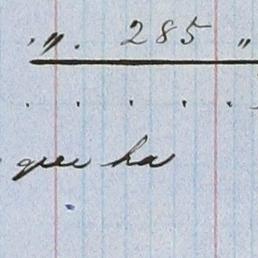 .〃. 285 〃
. . . . .
que ha